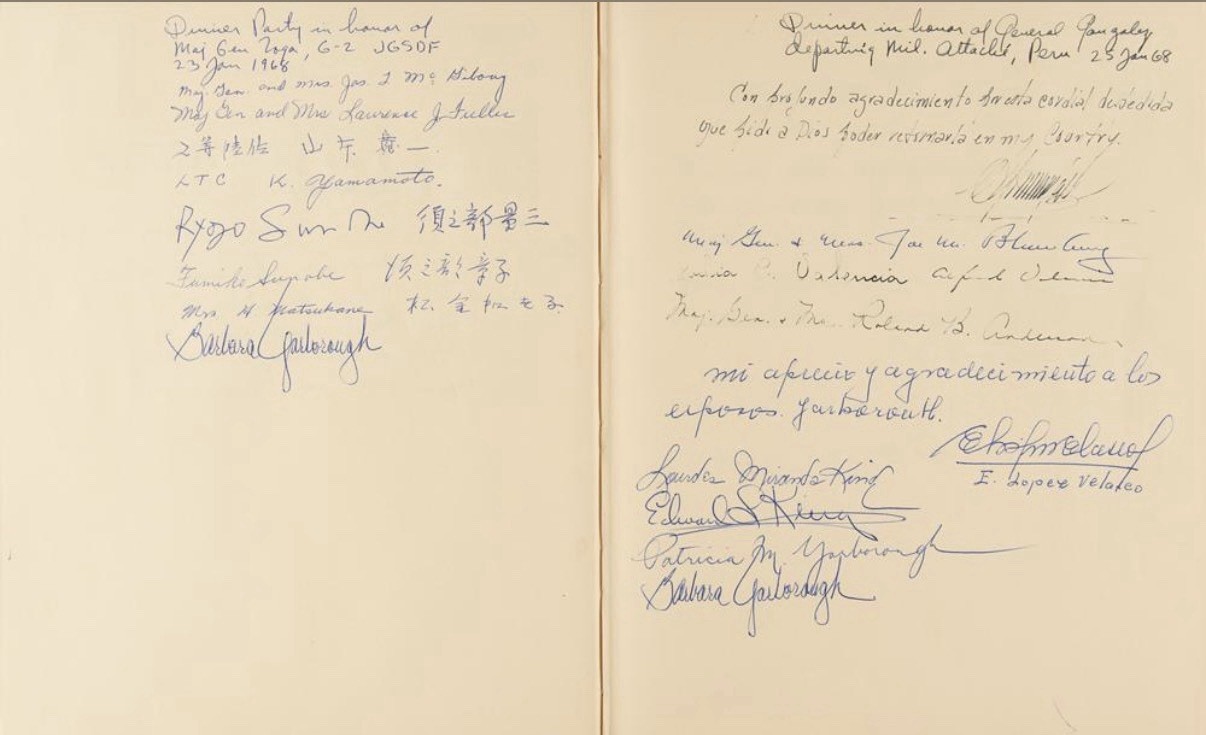 Dinner Party in honor of
Maj Gen Toga, G-2 JGSDF
23 Jan 1968
Maj. Gen. and Mrs. Jas. L Mc
Maj Gen and Mrs Laurence J Fuller
2等陸佐 山本 一
LTC K. Yamamoto.
Ryozo 須之部量三
Fumiko Sunobe 須之部章子
Mrs. H Matsukane 松金
Barbara Yarborough
Dinner in honor of General Gonzalez
departing Mil. Attaché, Peru 25 Jan 68
Con profundo agradecimiento por esta cordial despedida
que pido à Dios poder retornarla en my Courtry.
Maj Gen. & Mrs. Joe M.
Valencia
Maj. Gen. & Mrs. Roland B. Anderson
mi aprecio y agradecimiento a los
esposos. Yarborouth.
E. Lopez Velasco
Lourdes Miranda King
Edward L King
Patricia M. Yarborough
Barbara Yarborough